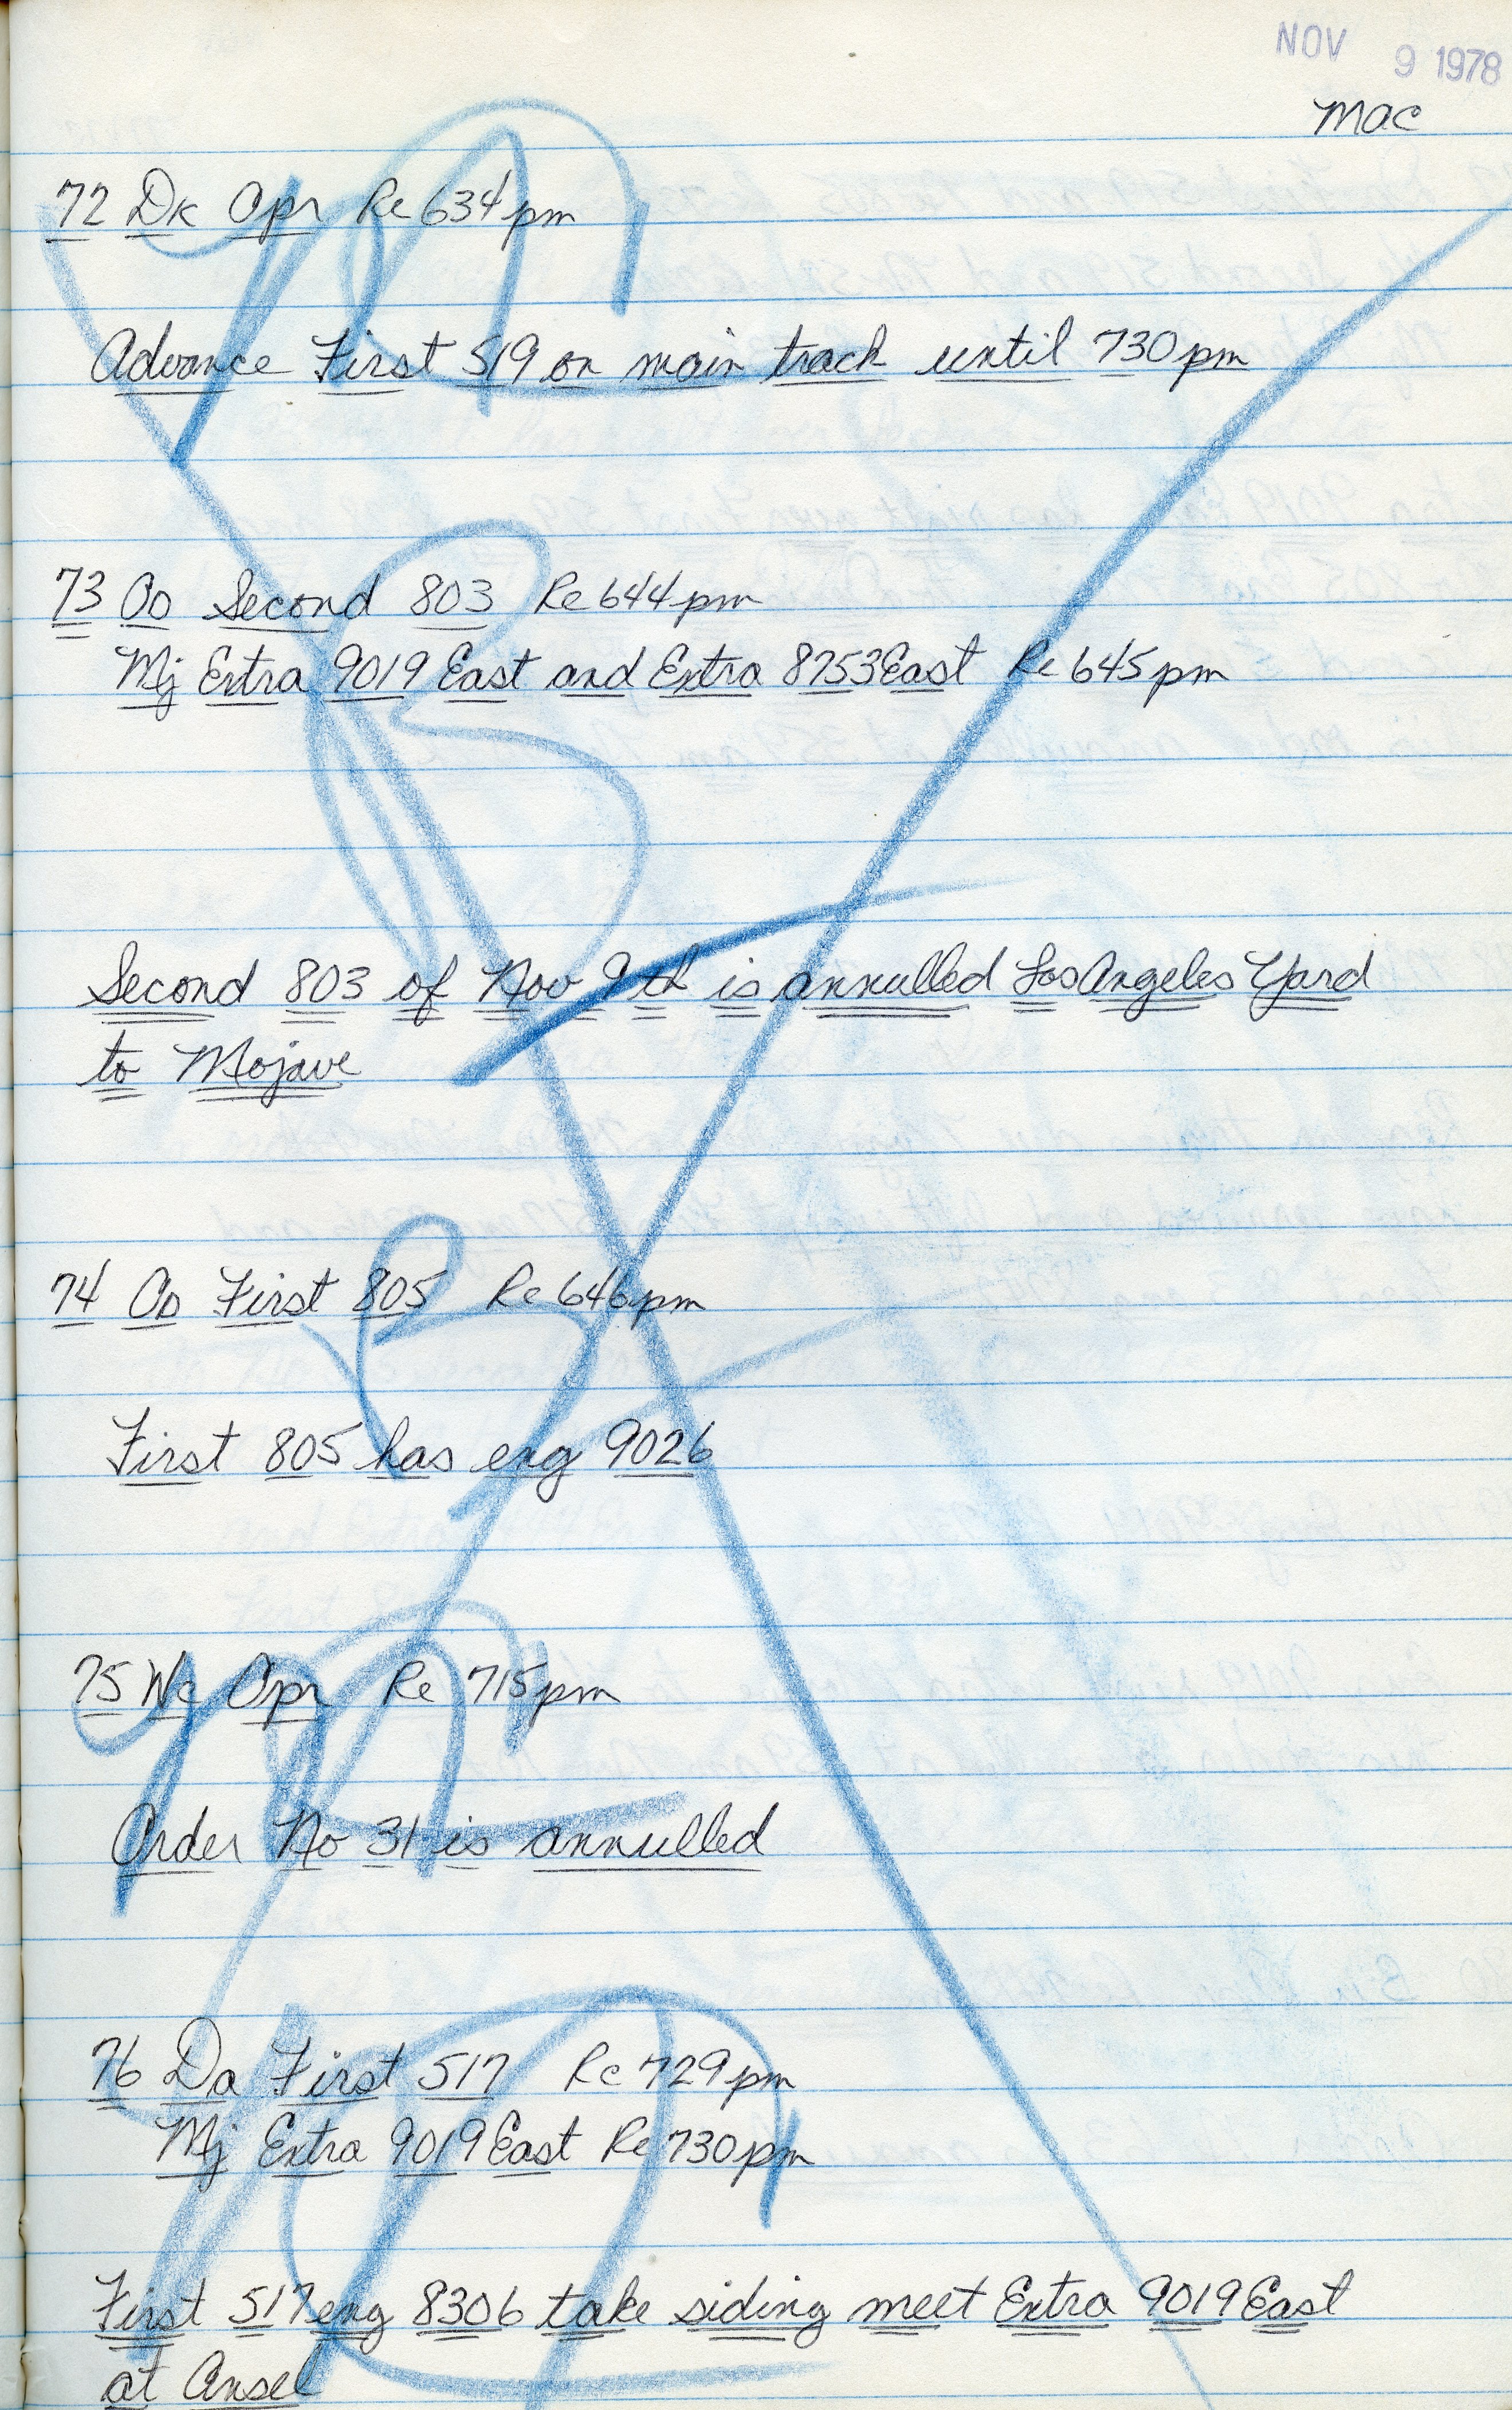 NOV 9 1978
MAC
72 Dk Opr Re 634pm
Advance First 519 on main track until 730pm
73 Oo Second 803 Re 644pm
Mj Extra 9019 East and Extra 8753 East Re 645pm
Second 803 of Nov 9th is annulled Los Angeles Yard
to Mojave
74 Oo First 805 Re 646pm
First 805 has eng 9026
75 Wc Opr Re 715pm
Order No 31 is annulled
76 Da First 517 Re 729pm
Mj Extra 9019 East Re 730pm
First 517 eng 8306 take siding meet Extra 9019 East
at Ansel